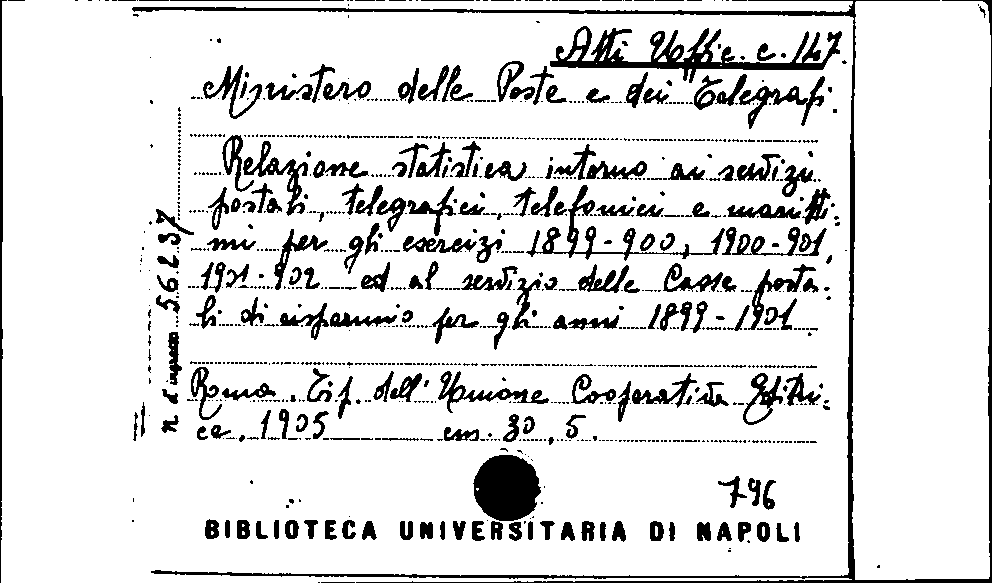 Atti Uffic. c. 147.
Ministero delle Poste e dei Telegrafi.
Relazione statistica intorno ai servizi
postali, telegrafici, telefonici e maritti:
mi per gli esercizi 1899-900, 1900-901,
1901-902 ed al servizio delle Casse posta:
li di risparmio per gli anni 1899-1901
Roma. Tip. dell'Unione Cooperativa Editri:
ce, 1905 cm. 30,5.
n. d'ingresso 56237
796
BIBLIOTECA UNIVERSITARIA DI NAPOLI